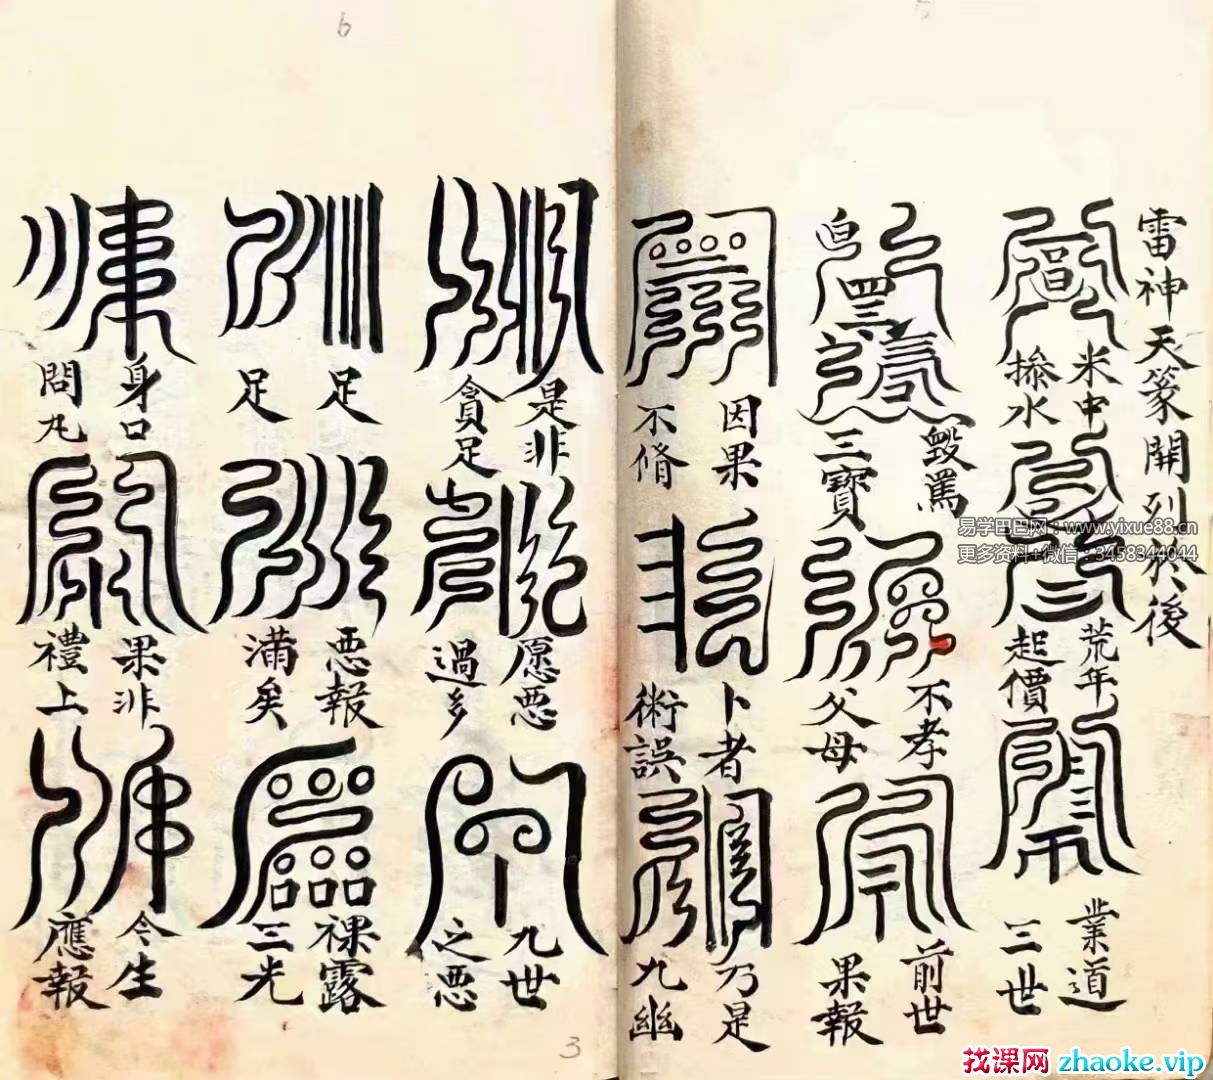 雷神天篆開列於後
米中
摻水
荒年
起價
業道
三世
毀罵
三寶
不孝
父母
前世
果報
因果
不脩
卜者
術誤
乃是
九幽
是非
貪足
愿悪
過多
九世
之悪
足
足
悪報
滿矣
裸露
三光
身口
問
果非
禮上
今生
應報
6
3
易学巴巴网：www.yixue88.cn
更多资料+微信：3458344044
找课网 zhaoke.vip